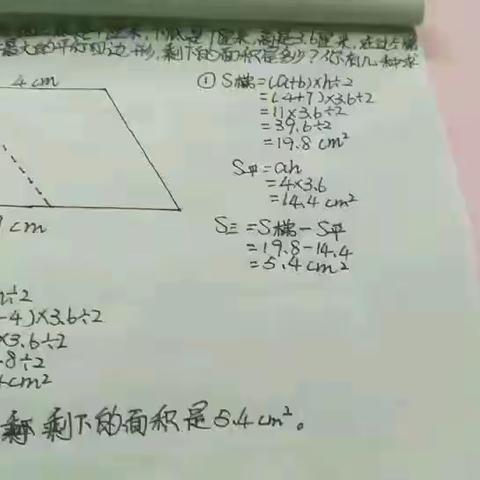 厘米,下底是7厘米,高是3.6厘米,在里面
最大的平行四边形,剩下的面积是多少?你有几种求
4 cm
cm
① S梯=(a+b)×h÷2
=(4+7)×3.6÷2
=11×3.6÷2
=39.6÷2
=19.8 cm²
S平=ah
=4×3.6
=14.4 cm²
S三=S梯-S平
=19.8-14.4
=5.4 cm²
÷2
-4)×3.6÷2
×3.6÷2
.8÷2
cm²
剩下的面积是5.4cm²。